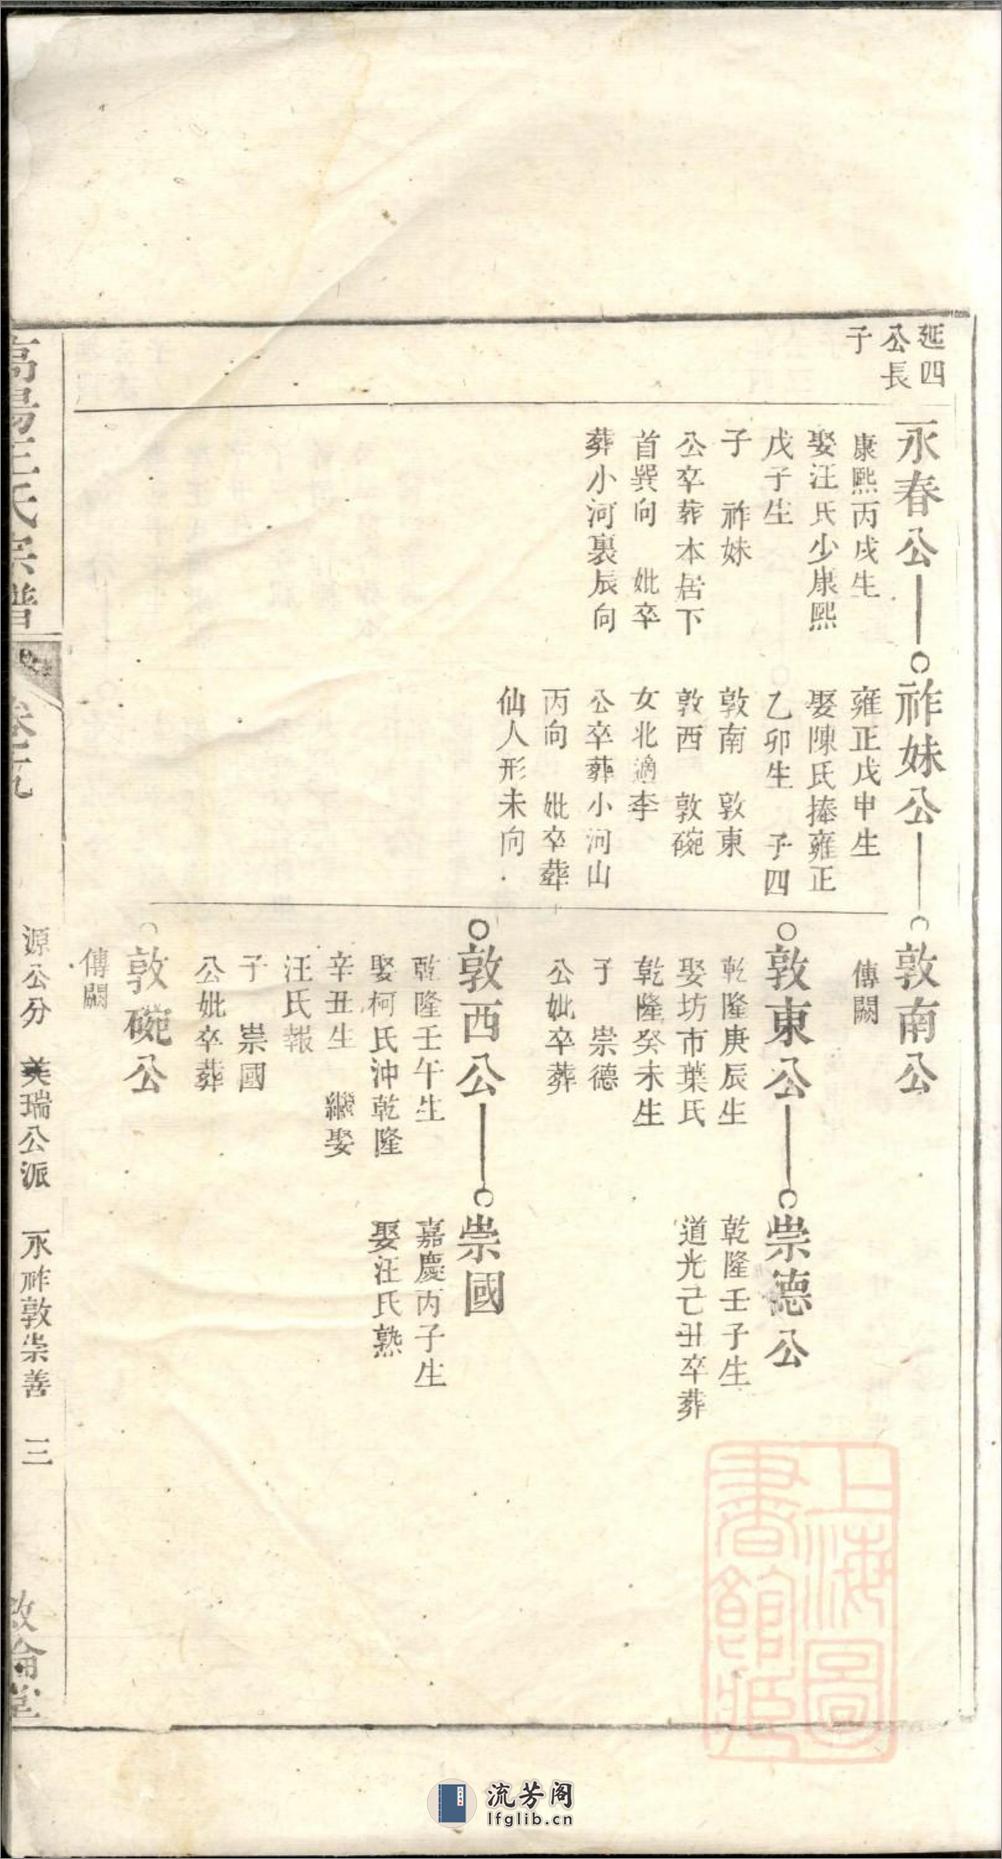 延四
公長
子
永春公
康熙丙戌生
娶汪氏少康熙
戊子生
子　祚妹
公卒葬本居下
首巽向　妣卒
葬小河裏辰向
祚妹公
雍正戊申生
娶陳氏捧雍正
乙卯生　子四
敦南　敦東
敦西　敦碗
女北適李
公卒葬小河山
丙向　妣卒葬
仙人形未向
敦南公
傳闕
敦東公
乾隆庚辰生
娶坊市葉氏
乾隆癸未生
子　崇德
公妣卒葬
崇德公
乾隆壬子生
道光己丑卒葬
敦西公
乾隆壬午生
娶柯氏沖乾隆
辛丑生　繼娶
汪氏報
子　崇國
公妣卒葬
崇國
嘉慶丙子生
娶汪氏熟
敦碗公
傳闕
高陽王氏宗譜
源公分　美瑞公派　永祚敦崇善　三
敦倫堂
上海圖
書館藏
流芳阁
lfglib.cn